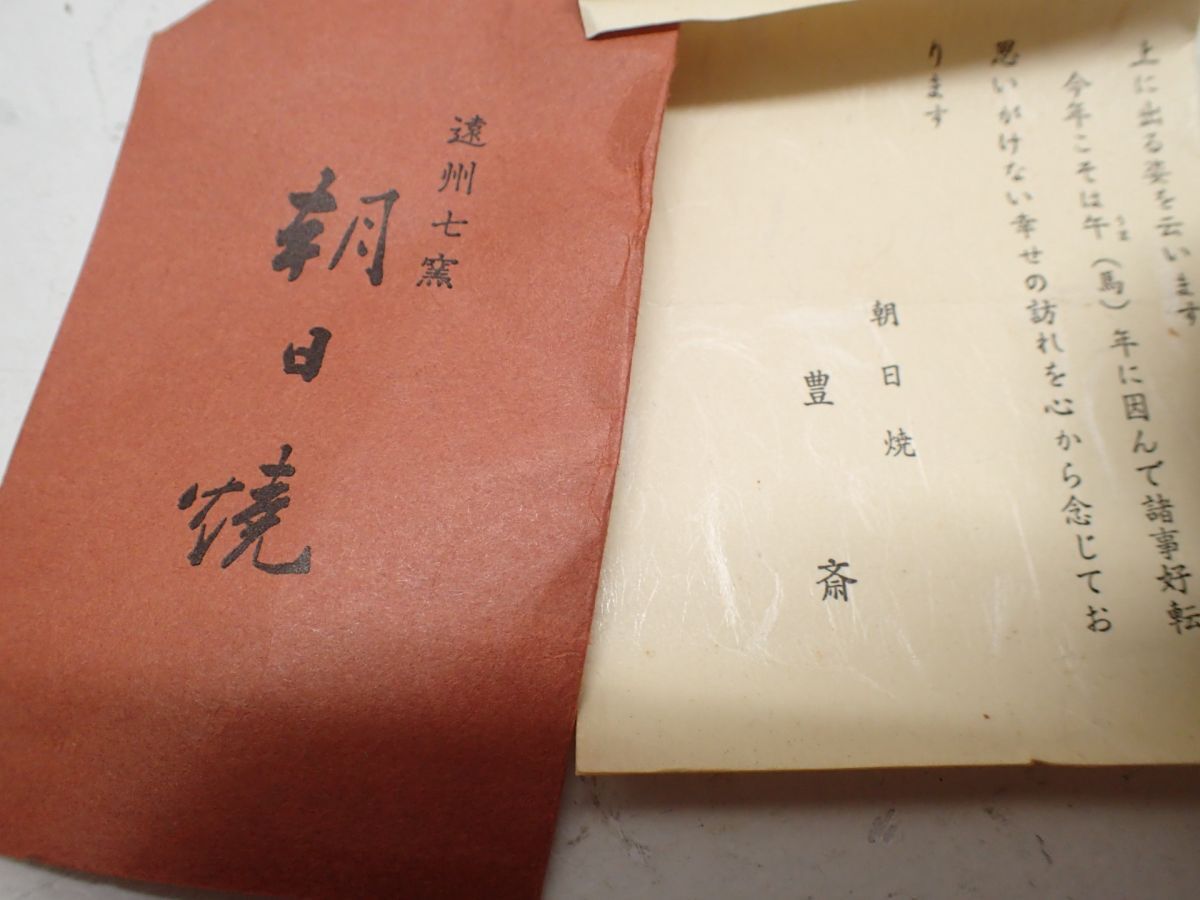 遠州七窯
朝日焼
上に出る姿を云います
今年こそは午(馬)年に因んで諸事好転
うま
思いがけない幸せの訪れを心から念じてお
ります
朝日焼
豊斎